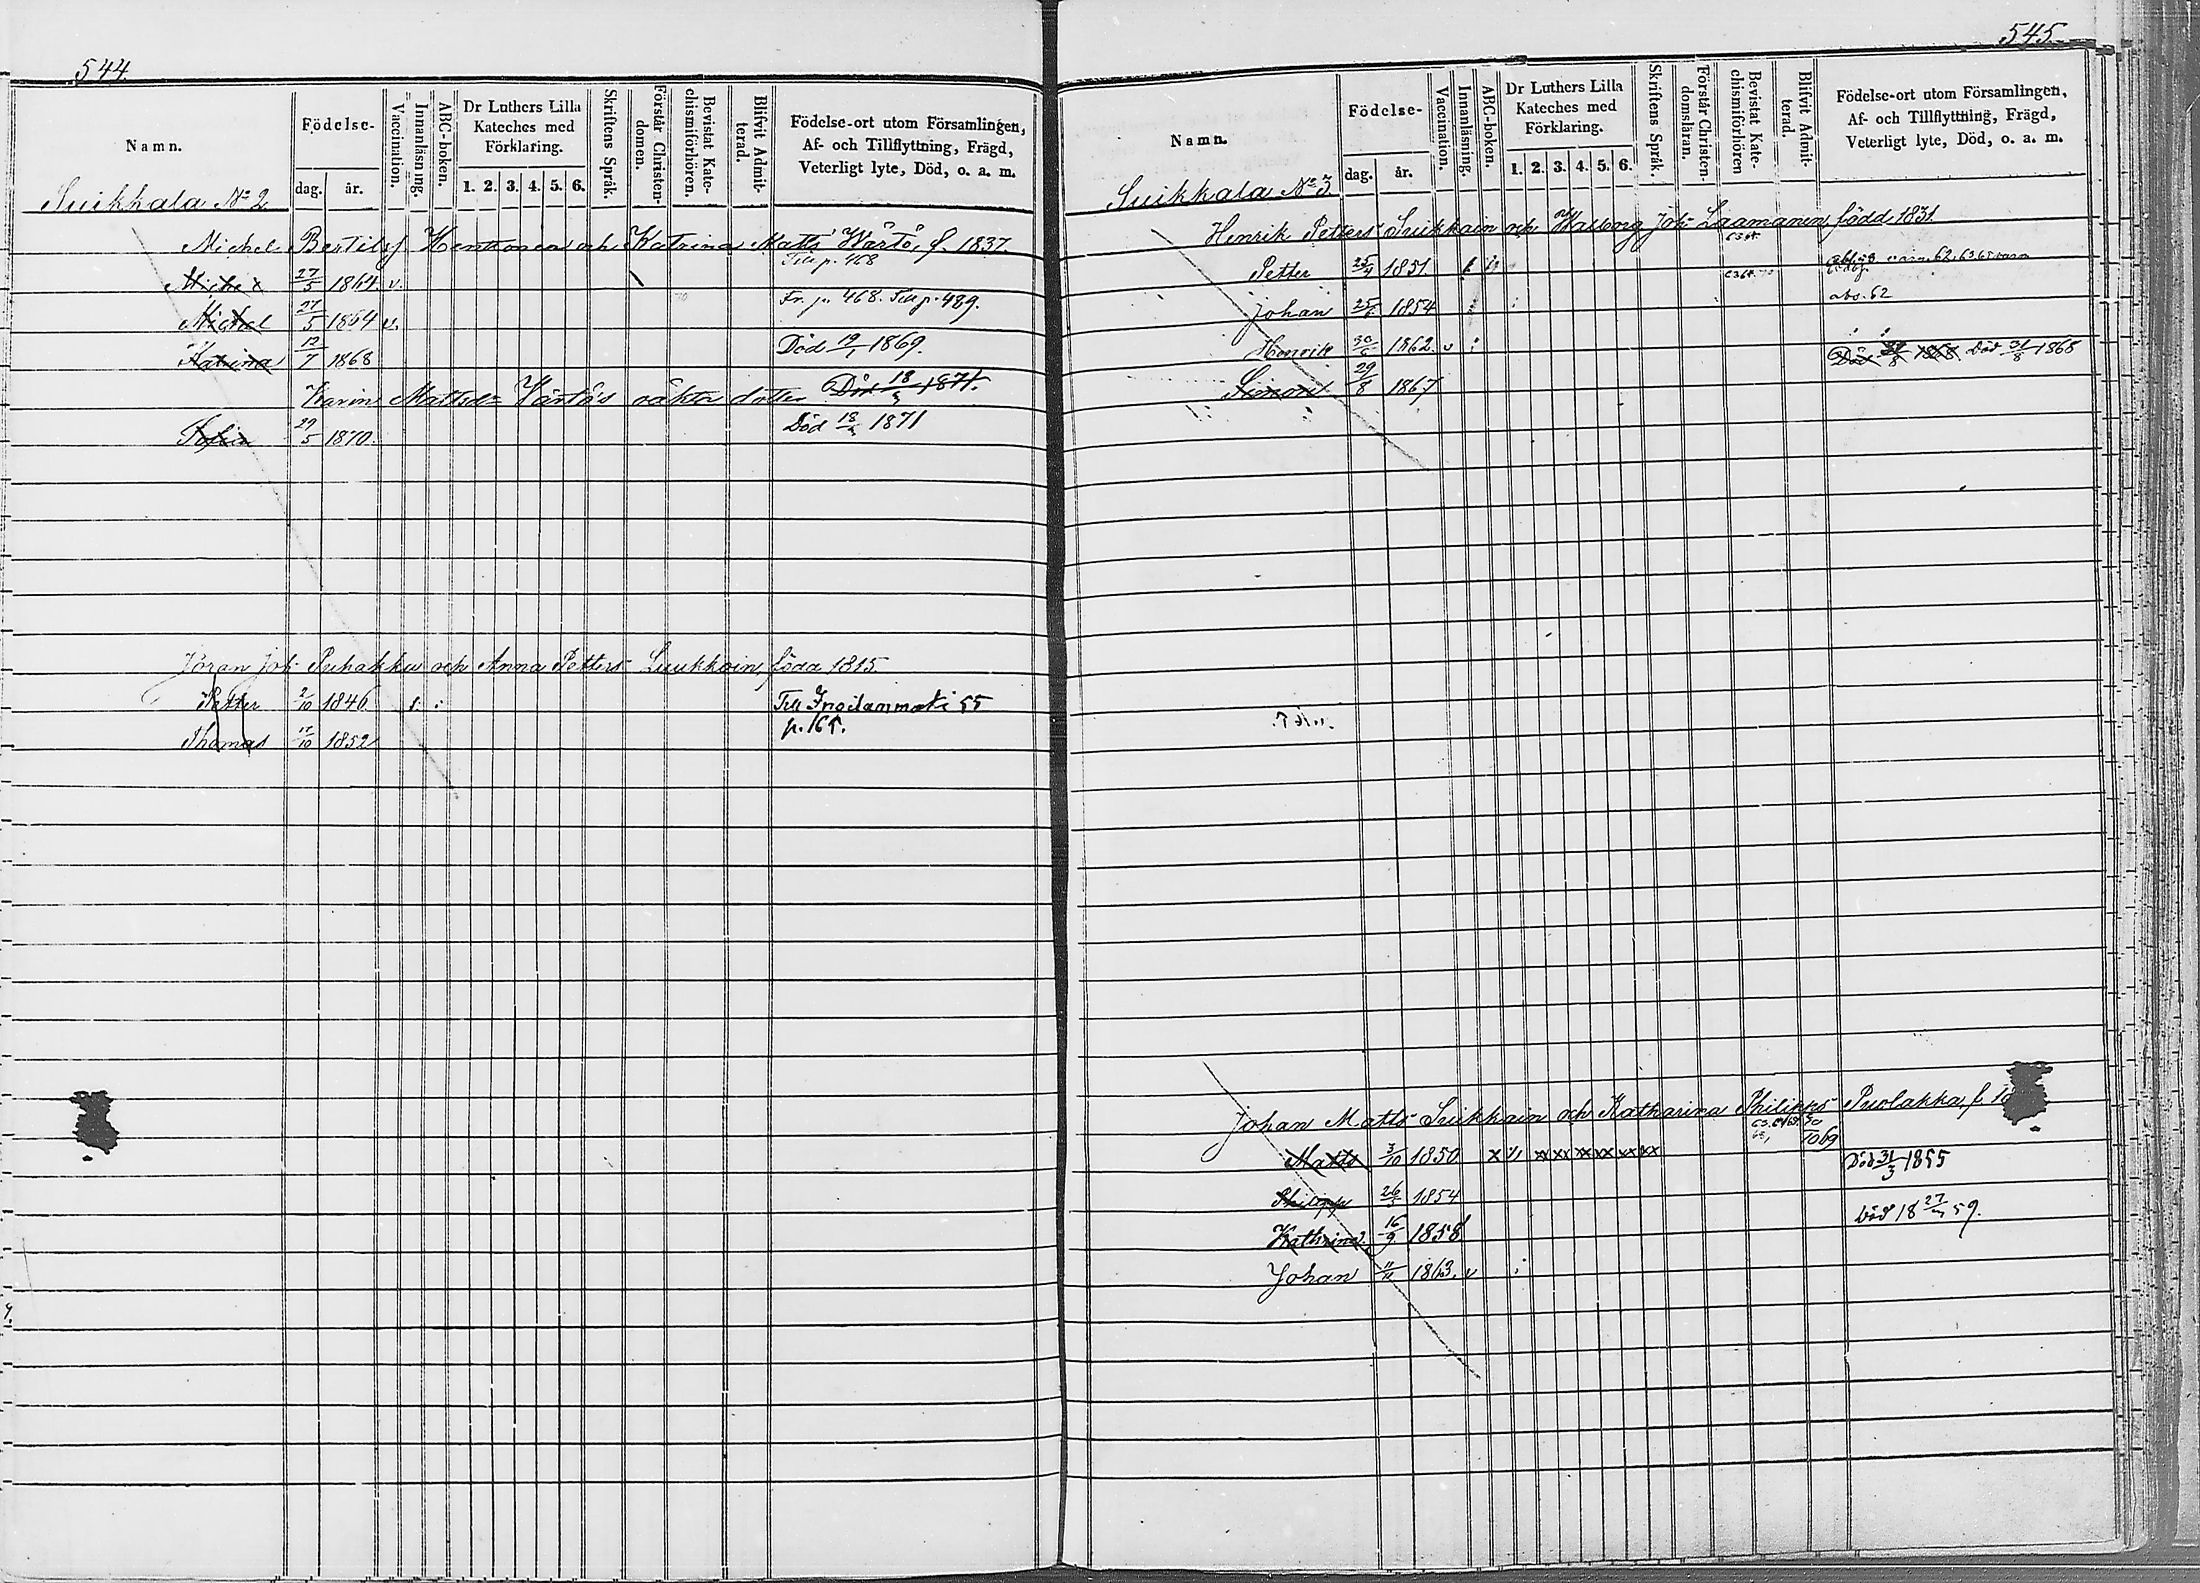 544.
Namn.
Födelse-
dag. år.
Vaccination.
Innanläsning.
ABC-boken.
Dr Luthers Lilla Kateches med Förklaring.
1. 2. 3. 4. 5. 6.
Skriftens Språk.
Förstår Christendomen.
Bevistat Katechismiförhören.
Blifvit Admitterad.
Födelse-ort utom Församlingen, Af- och Tillflyttning, Frägd, Veterligt lyte, Död, o. a. m.
Suikkala No 2
Michel Bertilsf. Henttonen och Katrina Matts Wårtö, f. 1837.
Michel 27/5 1864 v. Till p. 468
Michel 27/5 1864 v. Fr. p. 468. Till p. 489.
Katrina 12/7 1868 Död 19/1 1869.
Karin Mattsdr dotter Död 18/ 1871.
Sofia 29/5 1870. Död 18/ 1871
Jöran Joh: Puhakka och Anna Petters Suikkoin, föda 1815.
Petter 2/10 1846
Till p. 165.
Thomas 1852
545.
Namn.
Födelse-
dag. år.
Vaccination.
Innanläsning.
ABC-boken.
Dr Luthers Lilla Kateches med Förklaring.
1. 2. 3. 4. 5. 6.
Skriftens Språk.
Förstår Christendomsläran.
Bevistat Katechismiförhören
Blifvit Admitterad.
Födelse-ort utom Församlingen, Af- och Tillflyttning, Frägd, Veterligt lyte, Död, o. a. m.
Suikkala No 3
Henrik Petters Suikkain och Walborg Joh: Laamanen, född 1831.
Petter 25/4 1851
Johan 1854 abs. 62
Henrik 1862. v
Simon 29/8 1867 Död 1868. Död 31/8 1868
Johan Matts Suikkain och Katharina Philipps Puolakka, f. 18
Matts 3/10 1850 x
Philipp 1854 Död 31/3 1855
Kathrina 16/9 1858 Död 18 27/ 59.
Johan 1863. v